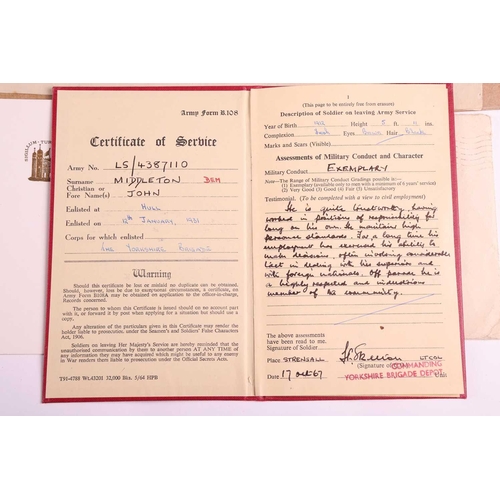 Army Form B.108
Certificate of Service
Army No. LS/4387110
Surname MIDDLETON BEM
Christian or
Fore Name(s) JOHN
Enlisted at HULL
Enlisted on JANUARY, 1931
Corps for which enlisted
THE YORKSHIRE BRIGADE
Warning
Should this certificate be lost or mislaid no duplicate can be obtained.
Should, however, loss be due to exceptional circumstance, a certificate, on
Army Form B108A may be obtained on application to the officer-in-charge,
Records concerned.
The person to whom this certificate is issued should on no account part
with it, or forward it by post when applying for a situation but should use a
copy.
Any alteration of the particulars given in this Certificate may render the
holder liable to prosecution, under the Seamen's and Soldiers' False Characters
Act, 1906.
Soldiers on leaving Her Majesty's Service are hereby reminded that the
unauthorised communication by them to another person AT ANY TIME of
any information they may have acquired which might be useful to any enemy
in War renders them liable to prosecution under the Official Secrets Acts.
T91-4788 Wt.43201 32,000 Bks. 5/64 SIPB
1
(This page to be entirely free from erasure)
Description of Soldier on leaving Army Service
Year of Birth Height 5 ft. ins.
Complexion Eyes Hair
Marks and Scars (Visible)
Assessments of Military Conduct and Character
Military Conduct EXEMPLARY
Note—The Range of Military Conduct Gradings possible is:—
(1) Exemplary (available only to men with a minimum of 6 years' service)
(2) Very Good (3) Good (4) Fair (5) Unsatisfactory
Testimonial. (To be completed with a view to civil employment)
He is quite trustworthy, having
worked in positions of responsibility for
long on his own. He maintains high
personal standards. For a long time his
employment has exercised his ability to
make decisions, often involving considerable
tact in dealing with his superiors and
with foreign nationals. Off parade he is
a highly respected and industrious
member of the community.
The above assessments
have been read to me.
Signature of Soldier
Place STRENSALL LT COL
(Signature of
COMMANDING
Date 17 Oct 67 YORKSHIRE BRIGADE DEPOT